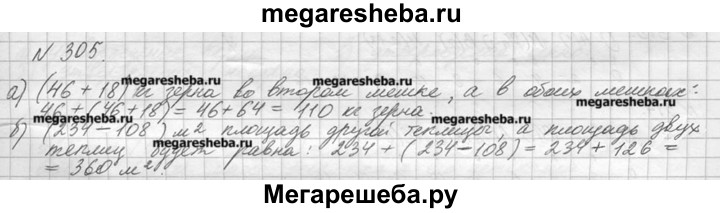 megaresheba.ru
N 305.
а) (46 + 18) кг зерна во втором мешке, а в обоих мешках:
megaresheba.ru megaresheba.ru
46 + (46 + 18) = 46 + 64 = 110 кг зерна.
megaresheba.ru megaresheba.ru
б) (234 - 108) м² площадь другой теплицы, а площадь двух
megaresheba.ru
теплиц будет равна: 234 + (234 - 108) = 234 + 126 =
= 360 м².
Мегарешеба.ру